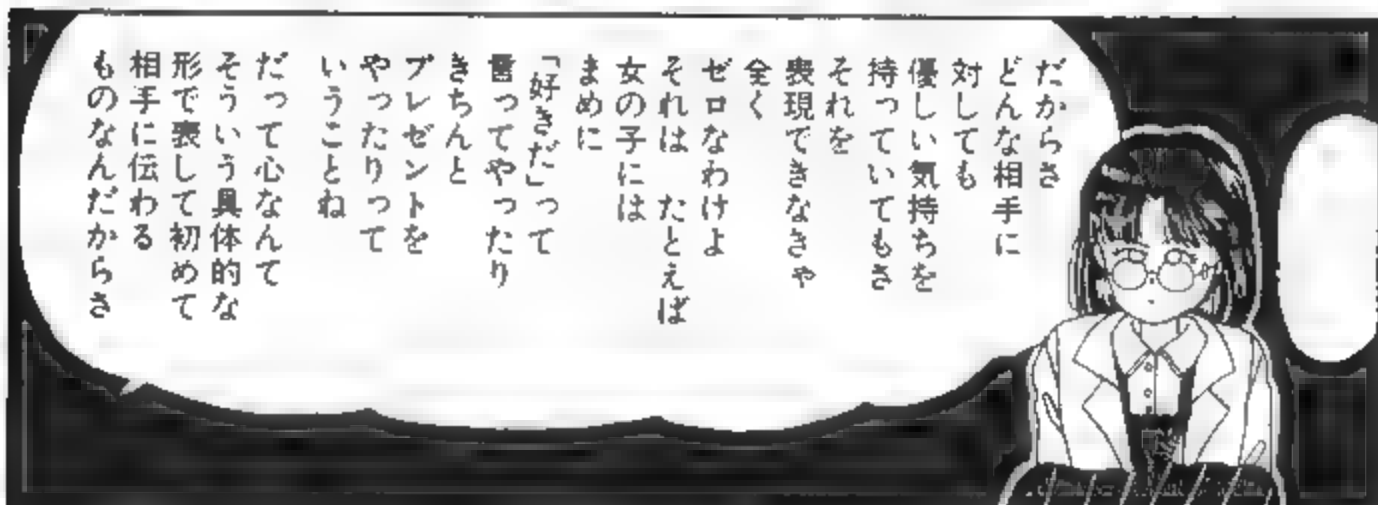 だからさ
どんな相手に
対しても
優しい気持ちを
持っていてもさ
それを
表現できなきゃ
全く
ゼロなわけよ
それは　たとえば
女の子には
まめに
「好きだ」って
言ってやったり
きちんと
プレゼントを
やったりって
いうことね
だって心なんて
そういう具体的な
形で表して初めて
相手に伝わる
ものなんだからさ